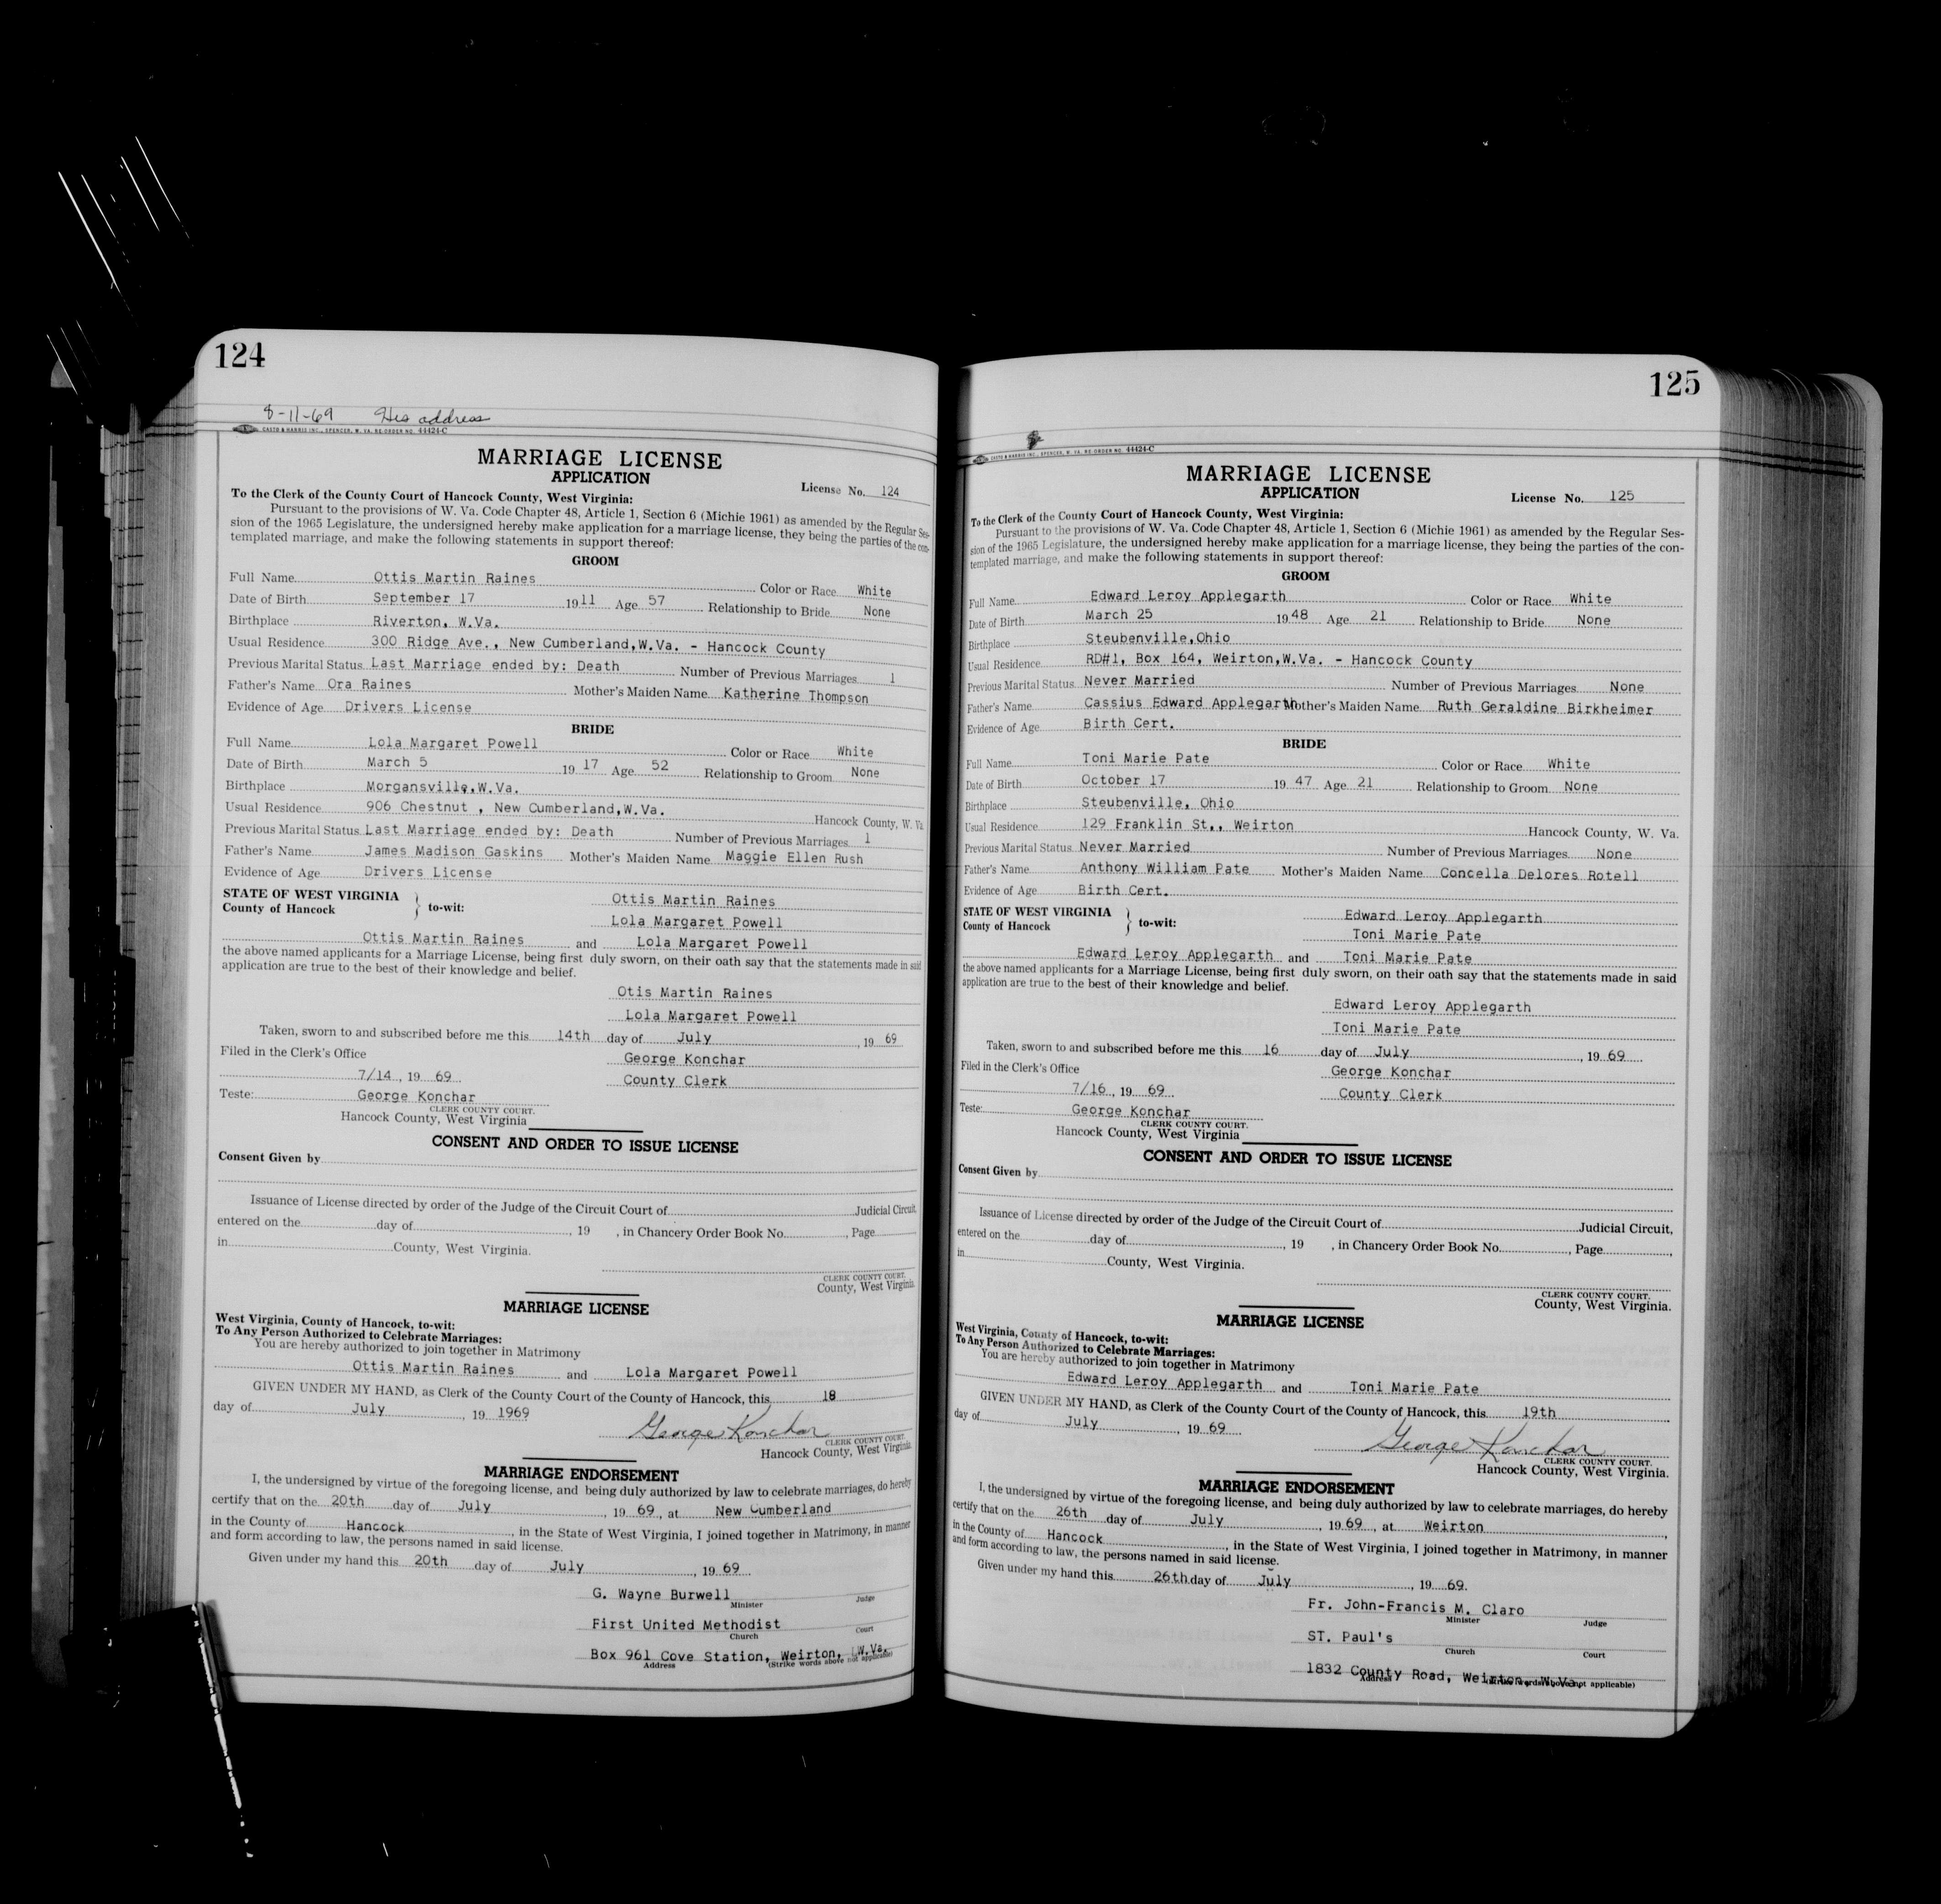 124
8-11-69 His address
CASTO & HARRIS INC., SPENCER, W. VA. RE-ORDER NO. 44424-C
MARRIAGE LICENSE
APPLICATION
License No. 124
To the Clerk of the County Court of Hancock County, West Virginia:
Pursuant to the provisions of W. Va. Code Chapter 48, Article 1, Section 6 (Michie 1961) as amended by the Regular Ses-
sion of the 1965 Legislature, the undersigned hereby make application for a marriage license, they being the parties of the con-
templated marriage, and make the following statements in support thereof:
GROOM
Full Name Ottis Martin Raines Color or Race White
Date of Birth September 17 1911 Age 57 Relationship to Bride None
Birthplace Riverton, W.Va.
Usual Residence 300 Ridge Ave., New Cumberland,W.Va. - Hancock County
Previous Marital Status Last Marriage ended by: Death Number of Previous Marriages 1
Father's Name Ora Raines Mother's Maiden Name Katherine Thompson
Evidence of Age Drivers License
BRIDE
Full Name Lola Margaret Powell Color or Race White
Date of Birth March 5 19 17 Age 52 Relationship to Groom None
Birthplace Morgansville,W.Va.
Usual Residence 906 Chestnut , New Cumberland,W.Va. Hancock County, W. Va.
Previous Marital Status Last Marriage ended by: Death Number of Previous Marriages 1
Father's Name James Madison Gaskins Mother's Maiden Name Maggie Ellen Rush
Evidence of Age Drivers License
STATE OF WEST VIRGINIA
County of Hancock } to-wit:
Ottis Martin Raines
Lola Margaret Powell
Ottis Martin Raines and Lola Margaret Powell
the above named applicants for a Marriage License, being first duly sworn, on their oath say that the statements made in said
application are true to the best of their knowledge and belief.
Otis Martin Raines
Lola Margaret Powell
Taken, sworn to and subscribed before me this 14th day of July , 19 69
Filed in the Clerk's Office George Konchar
7/14 , 19 69 County Clerk
Teste: George Konchar
CLERK COUNTY COURT.
Hancock County, West Virginia
CONSENT AND ORDER TO ISSUE LICENSE
Consent Given by
Issuance of License directed by order of the Judge of the Circuit Court of Judicial Circuit,
entered on the day of , 19 , in Chancery Order Book No. , Page
in County, West Virginia.
CLERK COUNTY COURT.
County, West Virginia.
MARRIAGE LICENSE
West Virginia, County of Hancock, to-wit:
To Any Person Authorized to Celebrate Marriages:
You are hereby authorized to join together in Matrimony
Ottis Martin Raines and Lola Margaret Powell
GIVEN UNDER MY HAND, as Clerk of the County Court of the County of Hancock, this 18
day of July , 19 1969
George Konchar
CLERK COUNTY COURT.
Hancock County, West Virginia.
MARRIAGE ENDORSEMENT
I, the undersigned by virtue of the foregoing license, and being duly authorized by law to celebrate marriages, do hereby
certify that on the 20th day of July , 19 69 , at New Cumberland
in the County of Hancock , in the State of West Virginia, I joined together in Matrimony, in manner
and form according to law, the persons named in said license.
Given under my hand this 20th day of July , 19 69
G. Wayne Burwell
Minister Judge
First United Methodist
Church Court
Box 961 Cove Station, Weirton, W.Va.
Address (Strike words above not applicable)
125
CASTO & HARRIS INC., SPENCER, W. VA. RE-ORDER NO. 44424-C
MARRIAGE LICENSE
APPLICATION
License No. 125
To the Clerk of the County Court of Hancock County, West Virginia:
Pursuant to the provisions of W. Va. Code Chapter 48, Article 1, Section 6 (Michie 1961) as amended by the Regular Ses-
sion of the 1965 Legislature, the undersigned hereby make application for a marriage license, they being the parties of the con-
templated marriage, and make the following statements in support thereof:
GROOM
Full Name Edward Leroy Applegarth Color or Race White
Date of Birth March 25 19 48 Age 21 Relationship to Bride None
Birthplace Steubenville,Ohio
Usual Residence RD#1, Box 164, Weirton,W.Va. - Hancock County
Previous Marital Status Never Married Number of Previous Marriages None
Father's Name Cassius Edward Applegarth Mother's Maiden Name Ruth Geraldine Birkheimer
Evidence of Age Birth Cert.
BRIDE
Full Name Toni Marie Pate Color or Race White
Date of Birth October 17 19 47 Age 21 Relationship to Groom None
Birthplace Steubenville, Ohio
Usual Residence 129 Franklin St., Weirton Hancock County, W. Va.
Previous Marital Status Never Married Number of Previous Marriages None
Father's Name Anthony William Pate Mother's Maiden Name Concella Delores Rotell
Evidence of Age Birth Cert.
STATE OF WEST VIRGINIA
County of Hancock } to-wit:
Edward Leroy Applegarth
Toni Marie Pate
Edward Leroy Applegarth and Toni Marie Pate
the above named applicants for a Marriage License, being first duly sworn, on their oath say that the statements made in said
application are true to the best of their knowledge and belief.
Edward Leroy Applegarth
Toni Marie Pate
Taken, sworn to and subscribed before me this 16 day of July , 19 69
Filed in the Clerk's Office George Konchar
7/16 , 19 69 County Clerk
Teste: George Konchar
CLERK COUNTY COURT.
Hancock County, West Virginia
CONSENT AND ORDER TO ISSUE LICENSE
Consent Given by
Issuance of License directed by order of the Judge of the Circuit Court of Judicial Circuit,
entered on the day of , 19 , in Chancery Order Book No. , Page ,
in County, West Virginia.
CLERK COUNTY COURT.
County, West Virginia.
MARRIAGE LICENSE
West Virginia, County of Hancock, to-wit:
To Any Person Authorized to Celebrate Marriages:
You are hereby authorized to join together in Matrimony
Edward Leroy Applegarth and Toni Marie Pate
GIVEN UNDER MY HAND, as Clerk of the County Court of the County of Hancock, this 19th
day of July , 19 69
George Konchar
CLERK COUNTY COURT.
Hancock County, West Virginia.
MARRIAGE ENDORSEMENT
I, the undersigned by virtue of the foregoing license, and being duly authorized by law to celebrate marriages, do hereby
certify that on the 26th day of July , 19 69 , at Weirton ,
in the County of Hancock , in the State of West Virginia, I joined together in Matrimony, in manner
and form according to law, the persons named in said license.
Given under my hand this 26th day of July , 19 69.
Fr. John-Francis M. Claro
Minister Judge
ST. Paul's
Church Court
1832 County Road, Weirton, W.Va.
Address (Strike words above not applicable)